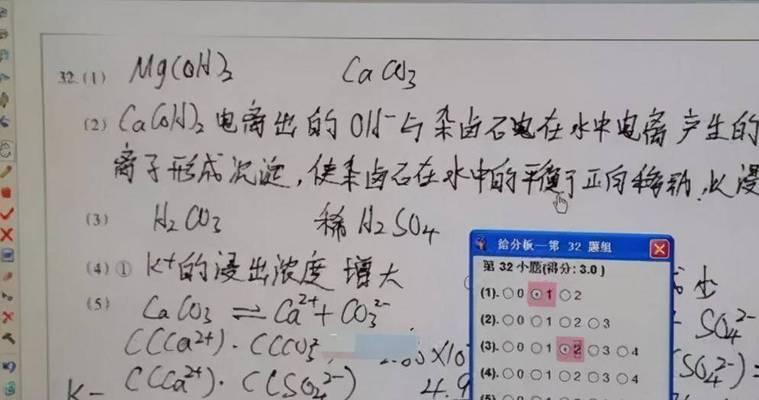 32.(1) Mg(OH)2 CaCO3
(2) Ca(OH)2电离出的OH⁻与杂卤石电在水中电离产生的
离子形成沉淀,使杂卤石在水中的平衡了正向移动,从浸
(3) H2CO3 稀H2SO4
(4)① K+的浸出浓度 增大
(5) CaCO3 ⇌ Ca²⁺+CO3²⁻ SO4²⁻
C(Ca²⁺)·C(CO3²⁻
K= C(Ca²⁺)·C(SO4²⁻) 4.9
给分板—第 32 题组
第 32 小题(得分: 3.0 )
(1). 0 1 2
(2). 0 1 2 3
(3). 0 1 2 3 4
(4). 0 1 2 3 4